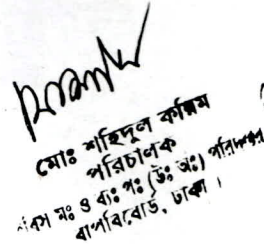 মোঃ শহিদুল করিম
পরিচালক
মঃ ও ব্যঃ পঃ (উঃ অঃ) পরিদপ্তর
বাপবিবোর্ড, ঢাকা।